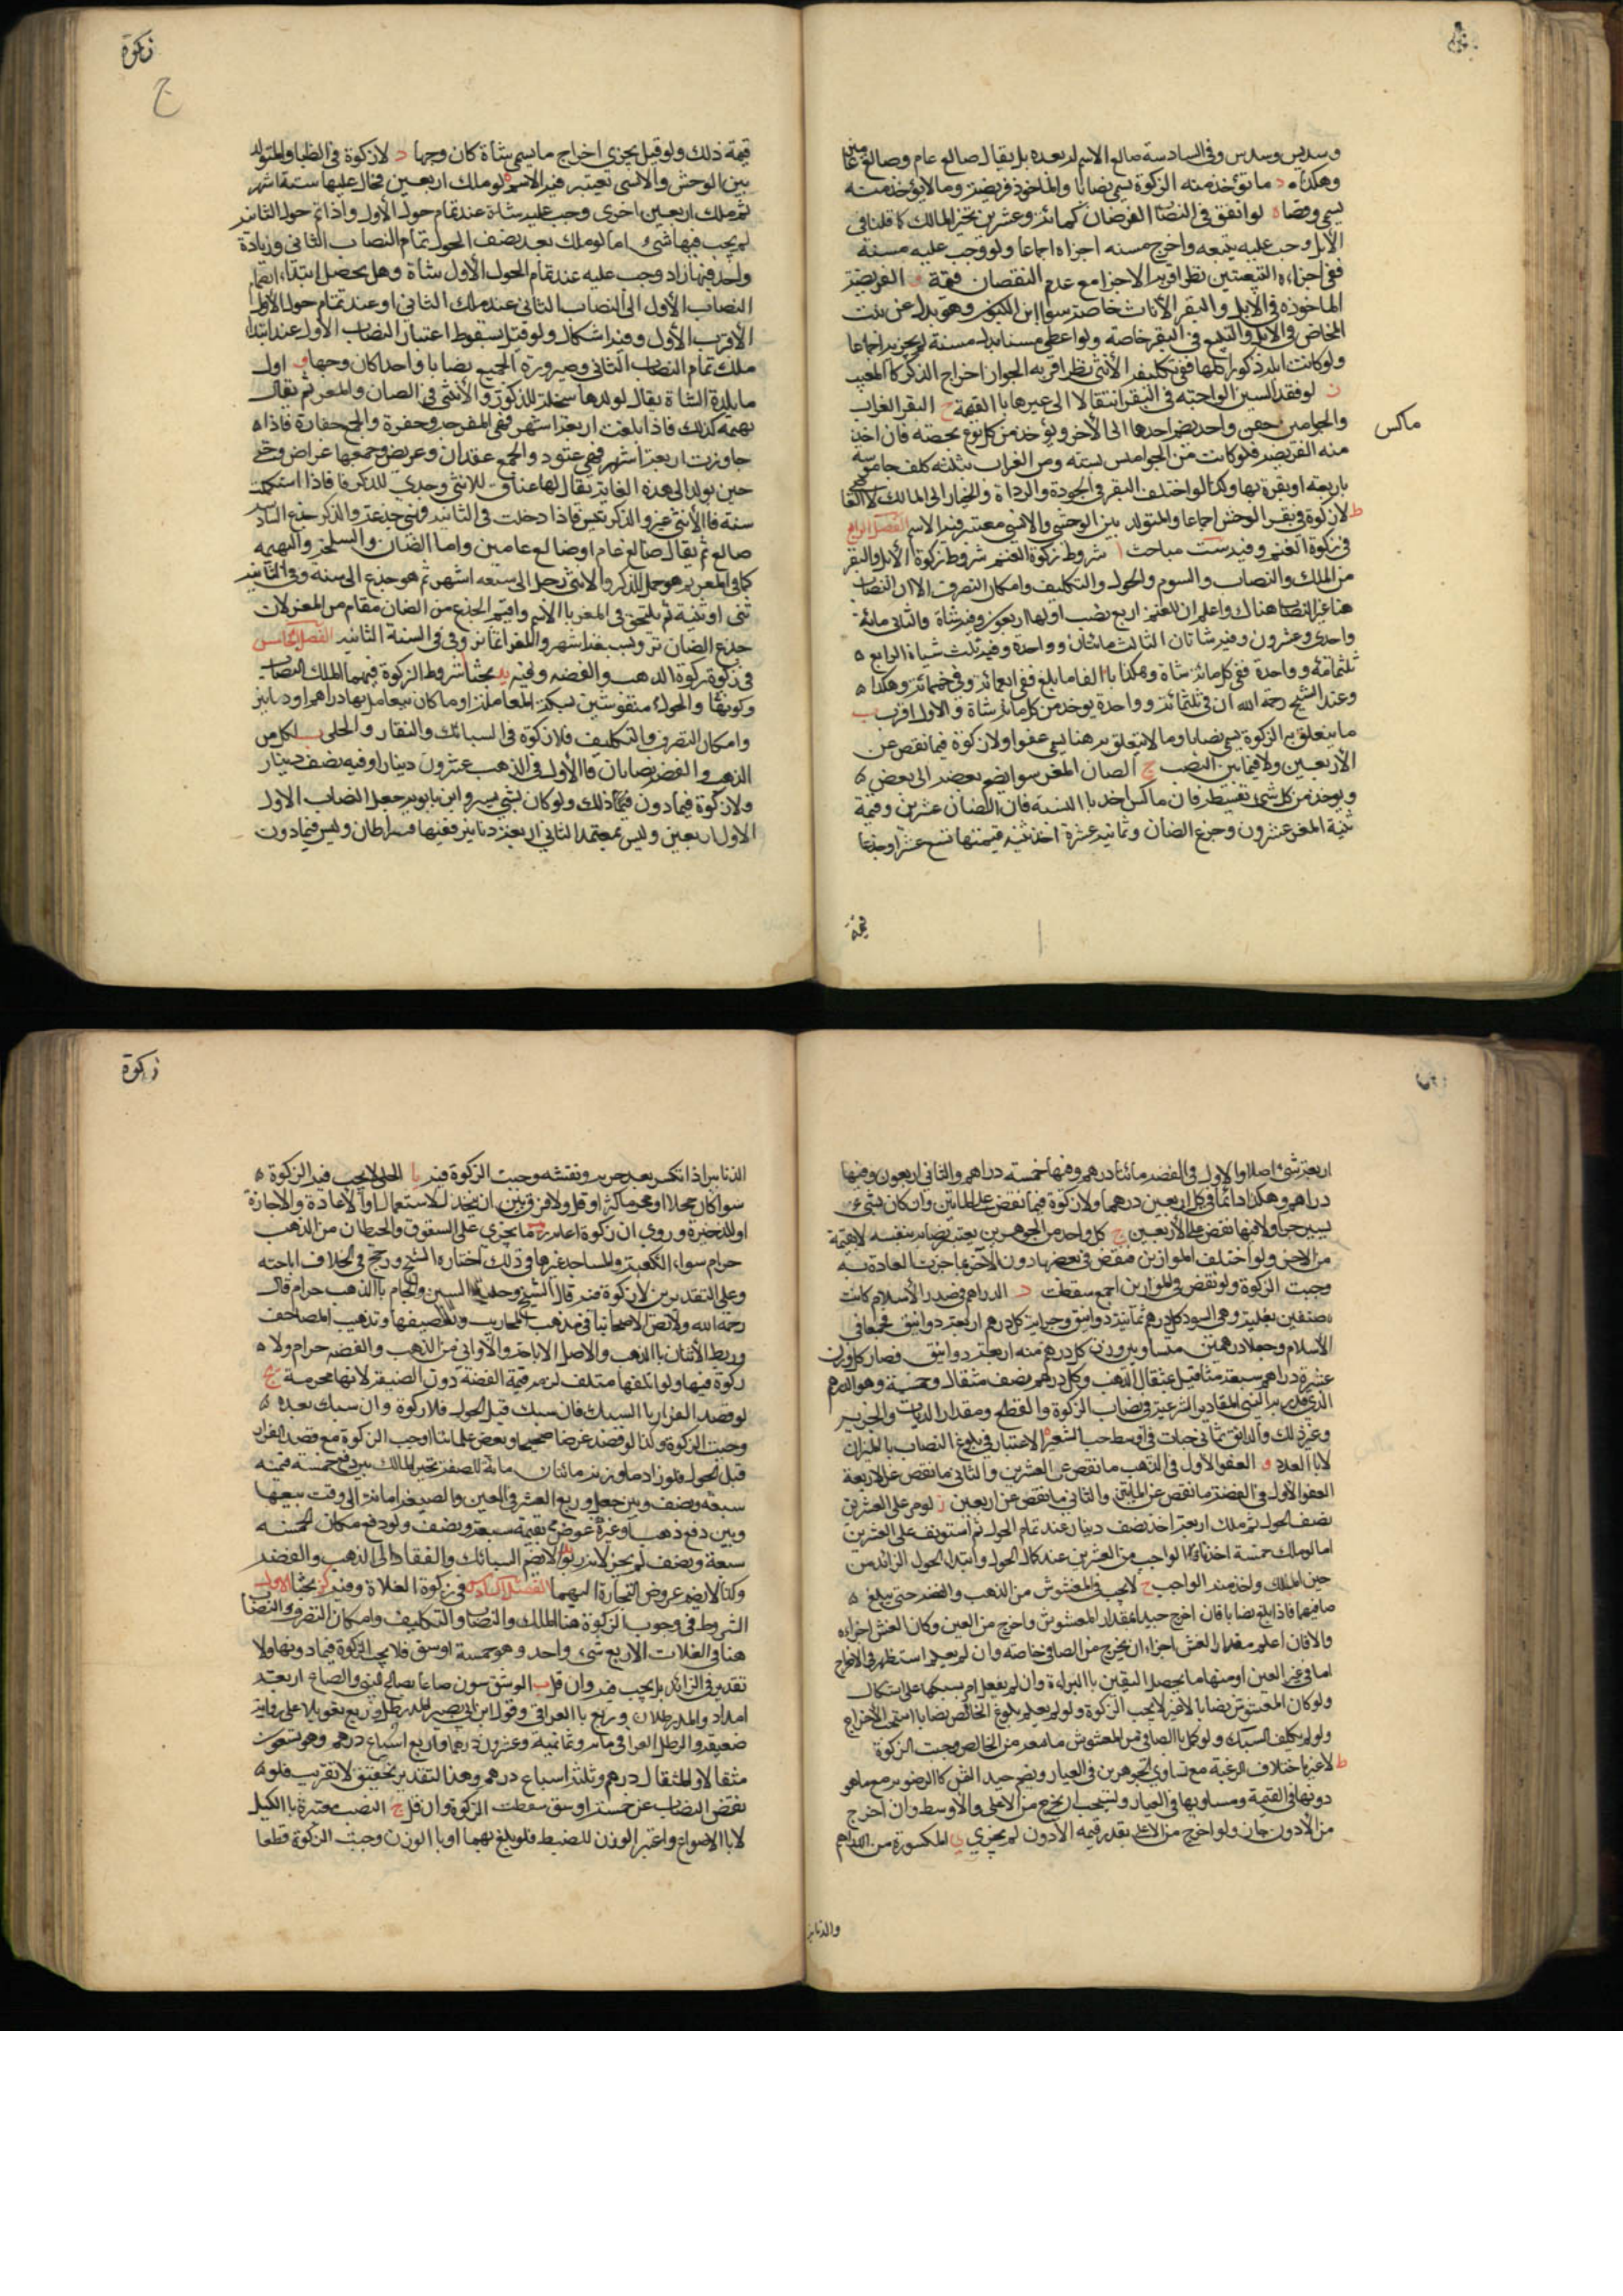 زكوة
وسديس وسدس وفى السادسة صالغ الاسم له بعده بل يقال صالغ عام وصالغ عامين
وهكذا د ما تؤخذ منه الزكوة تسمى نصابا والماخوذ فريضة وما لا يؤخذ منه
يسمى وقصا ه لو اتفق فى النصاب الفرضان كمائة وعشرين تخير المالك كما قلنا فى
الابل وجب عليه تبيعه واخرج مسنه اجزاه اجماعا ولو وجب عليه مسنة
ففى اجزاء التبيعتين نظر اقربه الاجزا مع عدم النقصان قيمة و الفريضة
الماخوذه فى الابل والبقر الاناث خاصة سوا ابن اللبون وهو بدل عن بنت
المخاض فى الابل والتبيع فى البقر خاصة ولو اعطى مسنا بدل مسنة لم يجز به اجماعا
ولو كانت ابله ذكورا كلها ففى تكليفه الأنثى نظر اقربه الجواز اخراج الذكر كالمعيب
ز لو فقد السن الواجبه فى البقر انتقالا الى غيرها باالقيمة ح البقر العراب
والجواميس جنس واحد يضم احدها الى الأخر ويؤخذ من كل نوع بحصته فان اخذ
ماكس
منه الفريضه فلو كانت من الجواميس بستة ومن العراب بثلثه كلف جاموسه
باربعة او بقرة بها وكذا لو اختلف البقر فى الجودة والرداة والخيار الى المالك لا الغا
ط لا زكوة فى بقر الوحش اجماعا والمتولد بين الوحشى والانسى معتبر فيه الاسم الفصل الرابع
فى زكوة الغنم وفيه ست مباحث ا شروط زكوة الغنم شروط زكوة الابل والبقر
من الملك والنصاب والسوم والحول والتكليف وامكان التصرف الا ان النصاب
هنا غير النصاب هناك واعلم ان للغنم اربع نصب اولها اربعون وفيه شاة والثانى مائة
واحدى وعشرون وفيه شاتان الثالث مائتان وواحدة وفيه ثلث شياة الرابع ه
ثلثمائه وواحدة ففى كل مائة شاة وهكذا باالغا ما بلغ ففى اربعمائة وفى خمسمائة وهكذا ه
وعند الشيخ رحمة الله ان فى ثلثمائة وواحدة يوخذ من كل مائة شاة والاول اقرب ب
ما يتعلق به الزكوة يسمى نصابا وما لا يتعلق به هنا يسمى عفوا ولا زكوة فيما نقص عن
الأربعين ولا فيما بين النصب ج الضان المعز سوا يضم بعضه الى بعض ه
ويوخذ من كل شى بقسطه فان ماكس اخذ باالنسبة فان الضان عشرين وقيمة
ثنية المعز عشرون وجذع الضان وثمانية عشرة اخذ ثنيه قيمتها تسع عشر او جذعا
قيمة
زكوة
قيمة ذلك ولو قيل يجزى اخراج ما يسمى شاة كان وجها د لا زكوة فى الظبا والمتولد
بين الوحش والانسى تعتبر فيه الاسم ه لو ملك اربعين فحال عليها ستة اشهر
ثم ملك اربعين اخرى وجب عليه شاة عند تمام حول الأول واذا تم حول الثانيه
لم يجب فيها شى و اما لو ملك بعد نصف الحول تمام النصاب الثانى وزيادة
واحد فما زاد وجب عليه عند تمام الحول الأول شاة وهل يحصل ابتداء انضمام
النصاب الأول الى النصاب الثانى عند ملك الثانى او عند تمام حول الأول
الأقرب الأول وفيه اشكال ولو قيل بسقوط اعتبار النصاب الأول عند ابتدا
ملك تمام النصاب الثانى وصيرورة الجميع نصابا واحدا كان وجها و اول
ما يلده الشاة يقال لولدها سخلة للذكورة والأنثى فى الضان والمعز ثم يقال
بهيمه كذلك فاذا بلغت اربعة اشهر ففى المفر جفر وجفرة والجمع جفار فاذا ه
جاوزت اربعة اشهر فهى عتود والجمع عقدان وعريض وجمعها عراض ومن
حين يولد الى هذه الغايه يقال لها عناق للانثى وجدى للذكر فاذا استكملت
سنة فاالأنثى عنز والذكر تيس فاذا دخلت فى الثانية فهى جذعة والذكر جذع السادسه
صالغ ثم يقال صالغ عام او ضالغ عامين واما الضان والسلخة والبهيمه
كما فى المعز ثم هو حمل للذكر والانثى رحل الى سبعه اشهر ثم هو جذع الى سنة وفى الثانيه
ثنى او ثنية ثم يلتحق فى المعز باالاسم واقيم الجذع من الضان مقام من المعز لان
جذع الضان تزو ليسبعة اشهر والمعز اغا تزوفى فى السنة الثانيه الفصل الخامس
فى زكوة الذهب والفضه وفيه يه بحثا شروط الزكوة فيهما الملك والنصاب
وكونهما والحول منقوشتين بسكة المعاملة او ما كان يتعامل بها دراهم او دنانير
وامكان التصرف والتكليف فلا زكوة فى السبائك والنقار والحلى ب لكل من
الذهب والفضه نصابان فاالأول فى الذهب عشرون دينارا وفيه نصف دينار
ولا زكوة فيما دون ذلك ولو كان بشى يسير وابن بابويه جعل النصاب الاول
الاول اربعين وليس بمعتمد الثانى اربعة دنانير وفيها قيراطان وليس فيما دون
اربعة شى اصلا واالاول فى الفضه مائتا درهم وفيها خمسة دراهم والثانى اربعون وفيها
درهم وهكذا دائما فى كل اربعين درهما ولا زكوة فيما نقص على المايتين وان كان بشى
يسير حبا ولا فيها نقص على الأربعين ج كل واحد من الجوهرين يعتبر نصابه بنفسه لا بقيمة
من الاخر ولو اختلف الموازين فنقص فى بعضها دون الآخر بما جرت العادة به
وجبت الزكوة ولو نقص فى الموازين اجمع سقطت د الدراهم فى صدر الأسلام كانت
صنفين بغلية وهى السود كل درهم ثمانية دوانيق وجرابية كل درهم اربعة دوانيق فجمعا فى
الأسلام وجعلا درهمين متساويين وزن كل درهم منه اربعة دوانيق فصار كل وزن
عشرة دراهم سبعة مثاقيل بمثقال الذهب وكل درهم نصف مثقال وخمسة وهو الدرهم
الذى قدر به النبى المقادير الشرعية فى نصاب الزكوة والقطع ومقدار الديات والجزيه
وغير ذلك والدانق ثمانى حبات فى اوسط حب الشعير ه الاعتبار فى بلوغ النصاب بالميزان
لا باالعدد و العفو الاول فى الذهب ما نقص عن العشرين والثانى ما نقص عن الاربعة
العفو الأول فى الفضة ما نقص عن المايتين والثانى ما نقص عن اربعين ز لو مر على العشرين
نصف الحول ثم ملك اربعة اخذ نصف دينار عند تمام الحول ثم استونف على العشرين
اما لو ملك خمسة اخذنا الواجب من العشرين عند كمال الحول وابتداء الحول الزائد من
حين الملك واخذ منه الواجب ح لا يجب فى المغشوش من الذهب والفضه حتى يبلغ ه
صافيهما فاذا بلغ نصابا فان اخرج جيدا بمقدار المغشوش واخرج من العين وكان الغش اجزاءه
والا فان اعلم مقدار الغش اجزا ان يخرج عن الصافى خاصه وان لم يعلم استظهر فى الاخراج
اما فى غير العين او منها ما يحصل اليقين باالبراءة وان لم يفعل ام بسبكها على اشكال
ولو كان المغشوش نصابا لا غير لا يجب الزكوة ولو لم يعلم بلوغ الخالص نصابا استحب الأخراج
ولو لم يكلف السبك ولو كمل باالصافى من المغشوش ما معه من الخالص وجبت الزكوة
ط لا عبرة باختلاف الرغبة مع تساوى الجوهرين فى العيار ويضم جيد الفضل كالرضويه مع ما هو
دونها فى القيمة ومساويها فى العيار ويستحب ان يخرج من الاعلى والأوسط وان اخرج
من الأدون جاز ولو اخرج من الاعلى بقدر قيمه الأدون لم يجزى ى المكسورة من الدراهم
والدنانير
زكوة
الدنانير اذا تكسر بعد ضربه ونقشه وجبت الزكوة فيه يا الحلى لا يجب فيه الزكوة ه
سوا كان محللا او محرما كثر او قل ولا فرق بين ان يتخذ للاستعمال او الاعادة والاجارة
او للذخيرة وروى ان زكوة اعارته ما يجزى على السقوف والحيطان من الذهب
حرام سواء الكعبة والمساجد غيرها وذلك اختاره الشيخ ورجح فى الخلاف اباحته
وعلى التقديرين لا زكوة فيه قال الشيخ وحلية السيف ولجام باالذهب حرام قال
رحمة الله ولا نص لاصحابنا فى مذهب المحاريب وتفضيضها وتذهيب المصاحف
وربط الأسنان باالذهب والاصل الاباحة والأوانى من الذهب والفضه حرام ولا ه
زكوة فيها ولو اتلفها متلف لزمه قيمة الفضة دون الصنيعة لانها محرمة يج
لو قصد الفرار باالسبك فان سبك قبل الحول فلا زكوة وان سبك بعده ه
وجبت الزكوة وكذا لو قصد غرضا صحيحا وبعض علمائنا اوجب الزكوة مع قصد الفرار
قبل الحول فلو زاد ما وزنه مائتان ماية للصفة تخير المالك بين دفع خمسة قيمته
سبعه ونصف وبين جعل ربع العشر فى العين والصيغه امانة الى وقت بيعها
وبين دفع ذهب او غيره عوض بقيمة سبعة ونصف ولو دفع مكان الخمسه
سبعة ونصف لم يجز لانه ربوا لا يضم السبائك والنقار الى الذهب والفضه
وكذا لا يضم عروض التجارة اليهما الفصل السادس فى زكوة الغلاة وفيه كز بحثا الاول
الشروط فى وجوب الزكوة هنا الملك والنصاب والتكليف وامكان التصرف والنصاب
هنا فى الغلات الاربع شى واحد وهو خمسة اوسق فلا يجب الزكوة فيما دونها ولا
تقدير فى الزائد بل يجب فيه وان قل ب الوسق ستون صاعا بصاع النبى والصاع اربعة
امداد والمد رطلان وربع باالعراقى وقول ابن ابى نصر المد رطل وربع تعويلا على رواية
ضعيفه والرطل العراقى ماية وثمانية وعشرون درهما واربع اسباع درهم وهو تسعون
مثقالا والمثقال درهم وثلثة اسباع درهم وهذا التقدير تحقيق لا تقريب فلو ه
نقص النصاب عن خمسة اوسق سقطت الزكوة وان قل ج النصب معتبرة باالكيل
لا باالاصواع واعتبر الوزن للضبط فلو بلغ بهما او باالوزن وجبت الزكوة قطعا